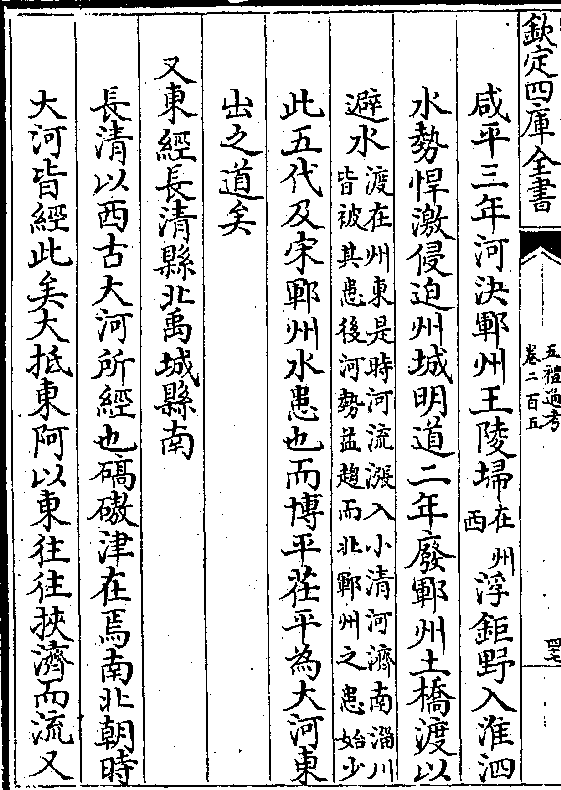 欽定四庫全書
五禮通考
卷二百五
咸平三年河決鄆州王陵埽在州西浮鉅野入淮泗
水勢悍激侵迫州城明道二年廢鄆州土橋渡以
避水渡在州東是時河流漲入小清河濟南淄川皆被其患後河勢益趨而北鄆州之患始少
此五代及宋鄆州水患也而博平茌平為大河東
出之道矣
又東經長清縣北禹城縣南
長清以西古大河所經也碻磝津在焉南北朝時
大河皆經此矣大抵東阿以東往往挾濟而流又